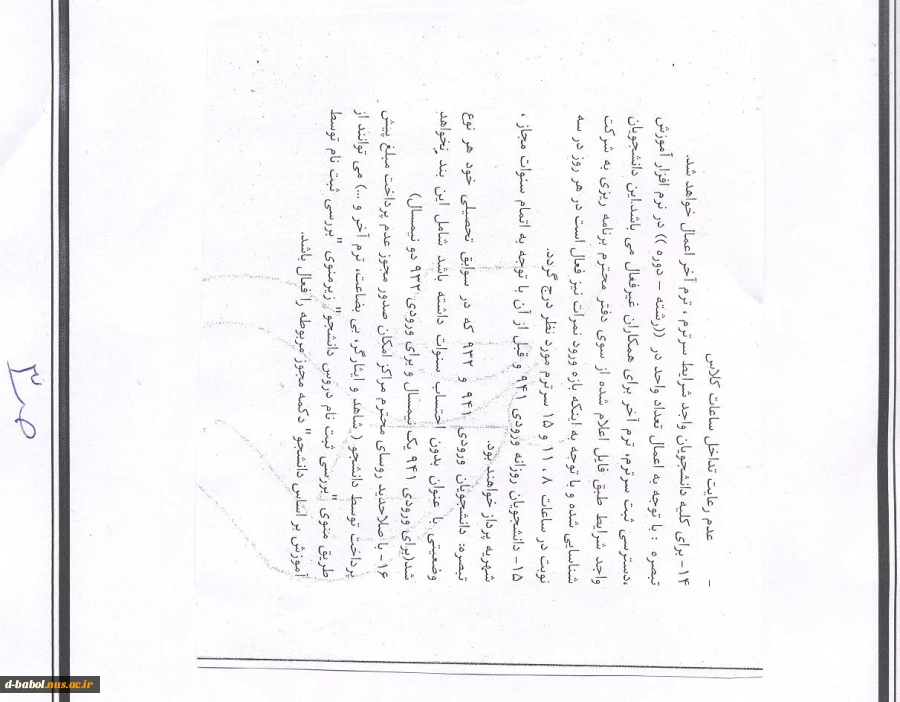 - عدم رعایت تداخل ساعات کلاس
۱۴- برای کلیه دانشجویان واجد شرایط سرترم ، ترم آخر اعمال خواهد شد.
تبصره : با توجه به اعمال تعداد واحد در ((رشته - دوره )) در نرم افزار آموزش
،دسترسی ثبت سرترم، ترم آخر برای همکاران غیرفعال می باشد.این دانشجویان
واجد شرایط طبق فایل اعلام شده از سوی دفتر محترم برنامه ریزی به شرکت
شناسایی شده و با توجه به اینکه بازه ورود نمرات نیز فعال است در هر روز در سه
نوبت در ساعت ۸، ۱۱ و ۱۵ سر ترم مورد نظر درج گردد.
۱۵- دانشجویان روزانه ورودی ۹۴۱ و قبل از آن با توجه به اتمام سنوات مجاز ،
شهریه پرداز خواهند بود.
تبصره: دانشجویان ورودی ۹۴۱ و ۹۳۲ که در سوابق تحصیلی خود هر نوع
وضعیتی با عنوان بدون احتساب سنوات داشته باشد شامل این بند نخواهد
شد(برای ورودی ۹۴۱ یک نیمسال و برای ورودی ۹۳۲ دو نیمسال)
۱۶- با صلاحدید روسای محترم مراکز امکان صدور مجوز عدم پرداخت مبلغ پیش
پرداخت توسط دانشجو ( شاهد و ایثارگر، بی بضاعت، ترم آخر و ...) می توانند از
طریق منوی "بررسی ثبت نام دروس دانشجو" زیرمنوی "بررسی ثبت نام توسط
آموزش بر اساس دانشجو" دکمه مجوز مربوطه را فعال باشد.
ص۳
d-babol.nus.ac.ir